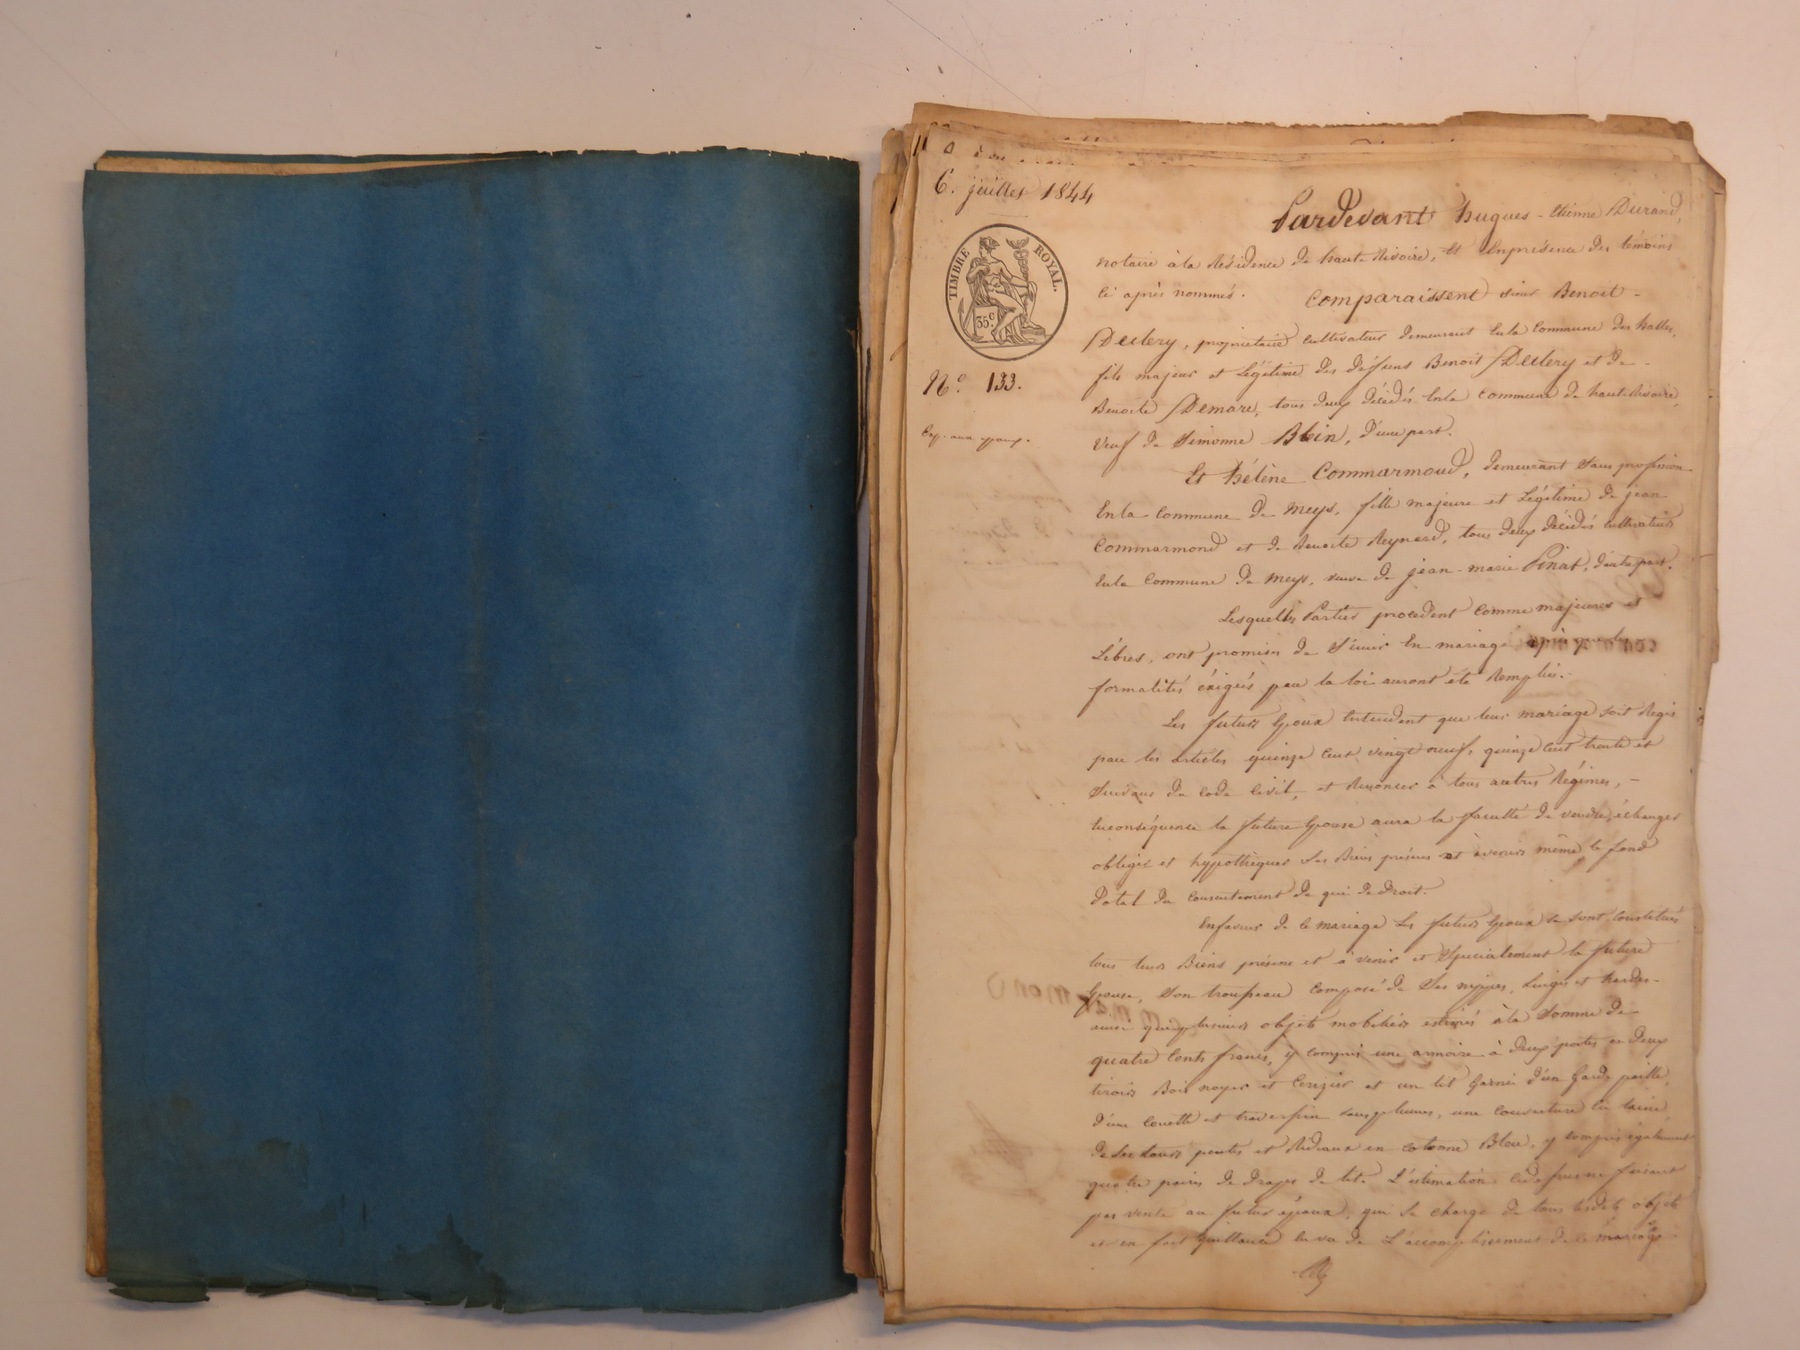 6. juillet 1844
TIMBRE ROYAL.
35c
No. 133.
Exp. aux époux.
Pardevant hugues-étienne Durand,
notaire à la Résidence de haute Rivoire, et Enprésence des témoins
ci après nommés. Comparaissent sieur Benoît
Declery, propriétaire cultivateur demeurant Enla Commune des halles,
fils majeur et Légitime des défuns Benoît Declery et de
Benoîte Demare, tous deux décédés Enla Commune de haute Rivoire,
Veuf de Simonne Blein, d'une part.
Et hélène Commarmond, demeurant sans profession
Enla Commune de meys, fille majeure et Légitime de jean
Commarmond et de Benoîte Reynard, tous deux décédés cultivateurs
Enla Commune de meys, veuve de jean-marie Pinat, d'autre part.
Lesquelles Parties procédent Comme majeures et
Libres, ont promis de S'unir En mariage après que les
formalités éxigés par la loi auront été Remplies.
Les futurs Epoux Entendent que leur mariage soit Régis
par les articles quinze Cent vingt neuf, quinze Cent trente et
Suivans du Code Civil, et Renoncer à tous autres Régimes,
Enconséquence la future Epouse aura la faculté de vendre, échanger
obliger et hypothèquer ses Biens présens et àvenir même le fond
Dotal du Consentement de qui de droit.
Enfaveur de ce mariage Les futurs Epoux se sont Constitués
tous leurs Biens présens et à venir et Spécialement la future
Epouse, Son trousseau Composé de Ses nippes, Linges et hardes
ainsi que plusieurs objets mobiliers estimés àla Somme de
quatre Cents francs, y compris une armoire à deux portes et deux
tiroirs Bois noyer et Cerizier et un lit Garni d'un Garde paille,
d'une Couette et traversin sans plumes, une Couverture En laine,
de Ses tours pentes et Rideaux en cotonne Bleu, y compris également
quatre paires de draps de lit. L'estimation Cidessus ne faisant
pas vente au futur époux, qui se charge de tous lesdits objets
et en fait quittance En vu de L'accomplissement de ce mariage